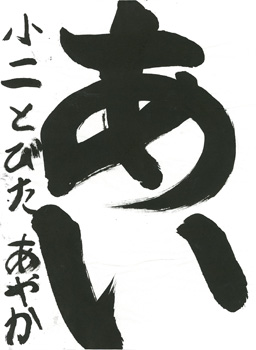 あい
小二 とびた あやか